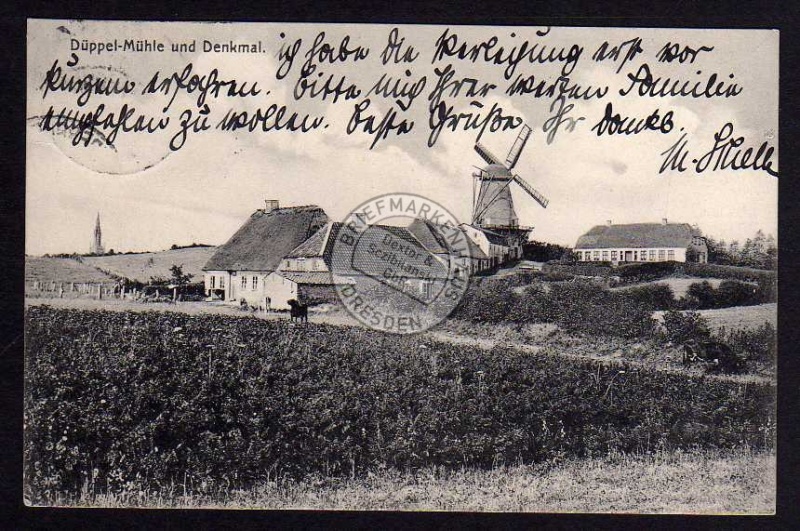 Düppel-Mühle und Denkmal. ich habe die Verleihung erst vor
kurzem erfahren. Bitte mich Ihrer werten Familie
empfehlen zu wollen. Beste Grüße Ihr dankb.
M.
BRIEFMARKENHAUS
Dexter &
Sczibilanski
GbR
DRESDEN